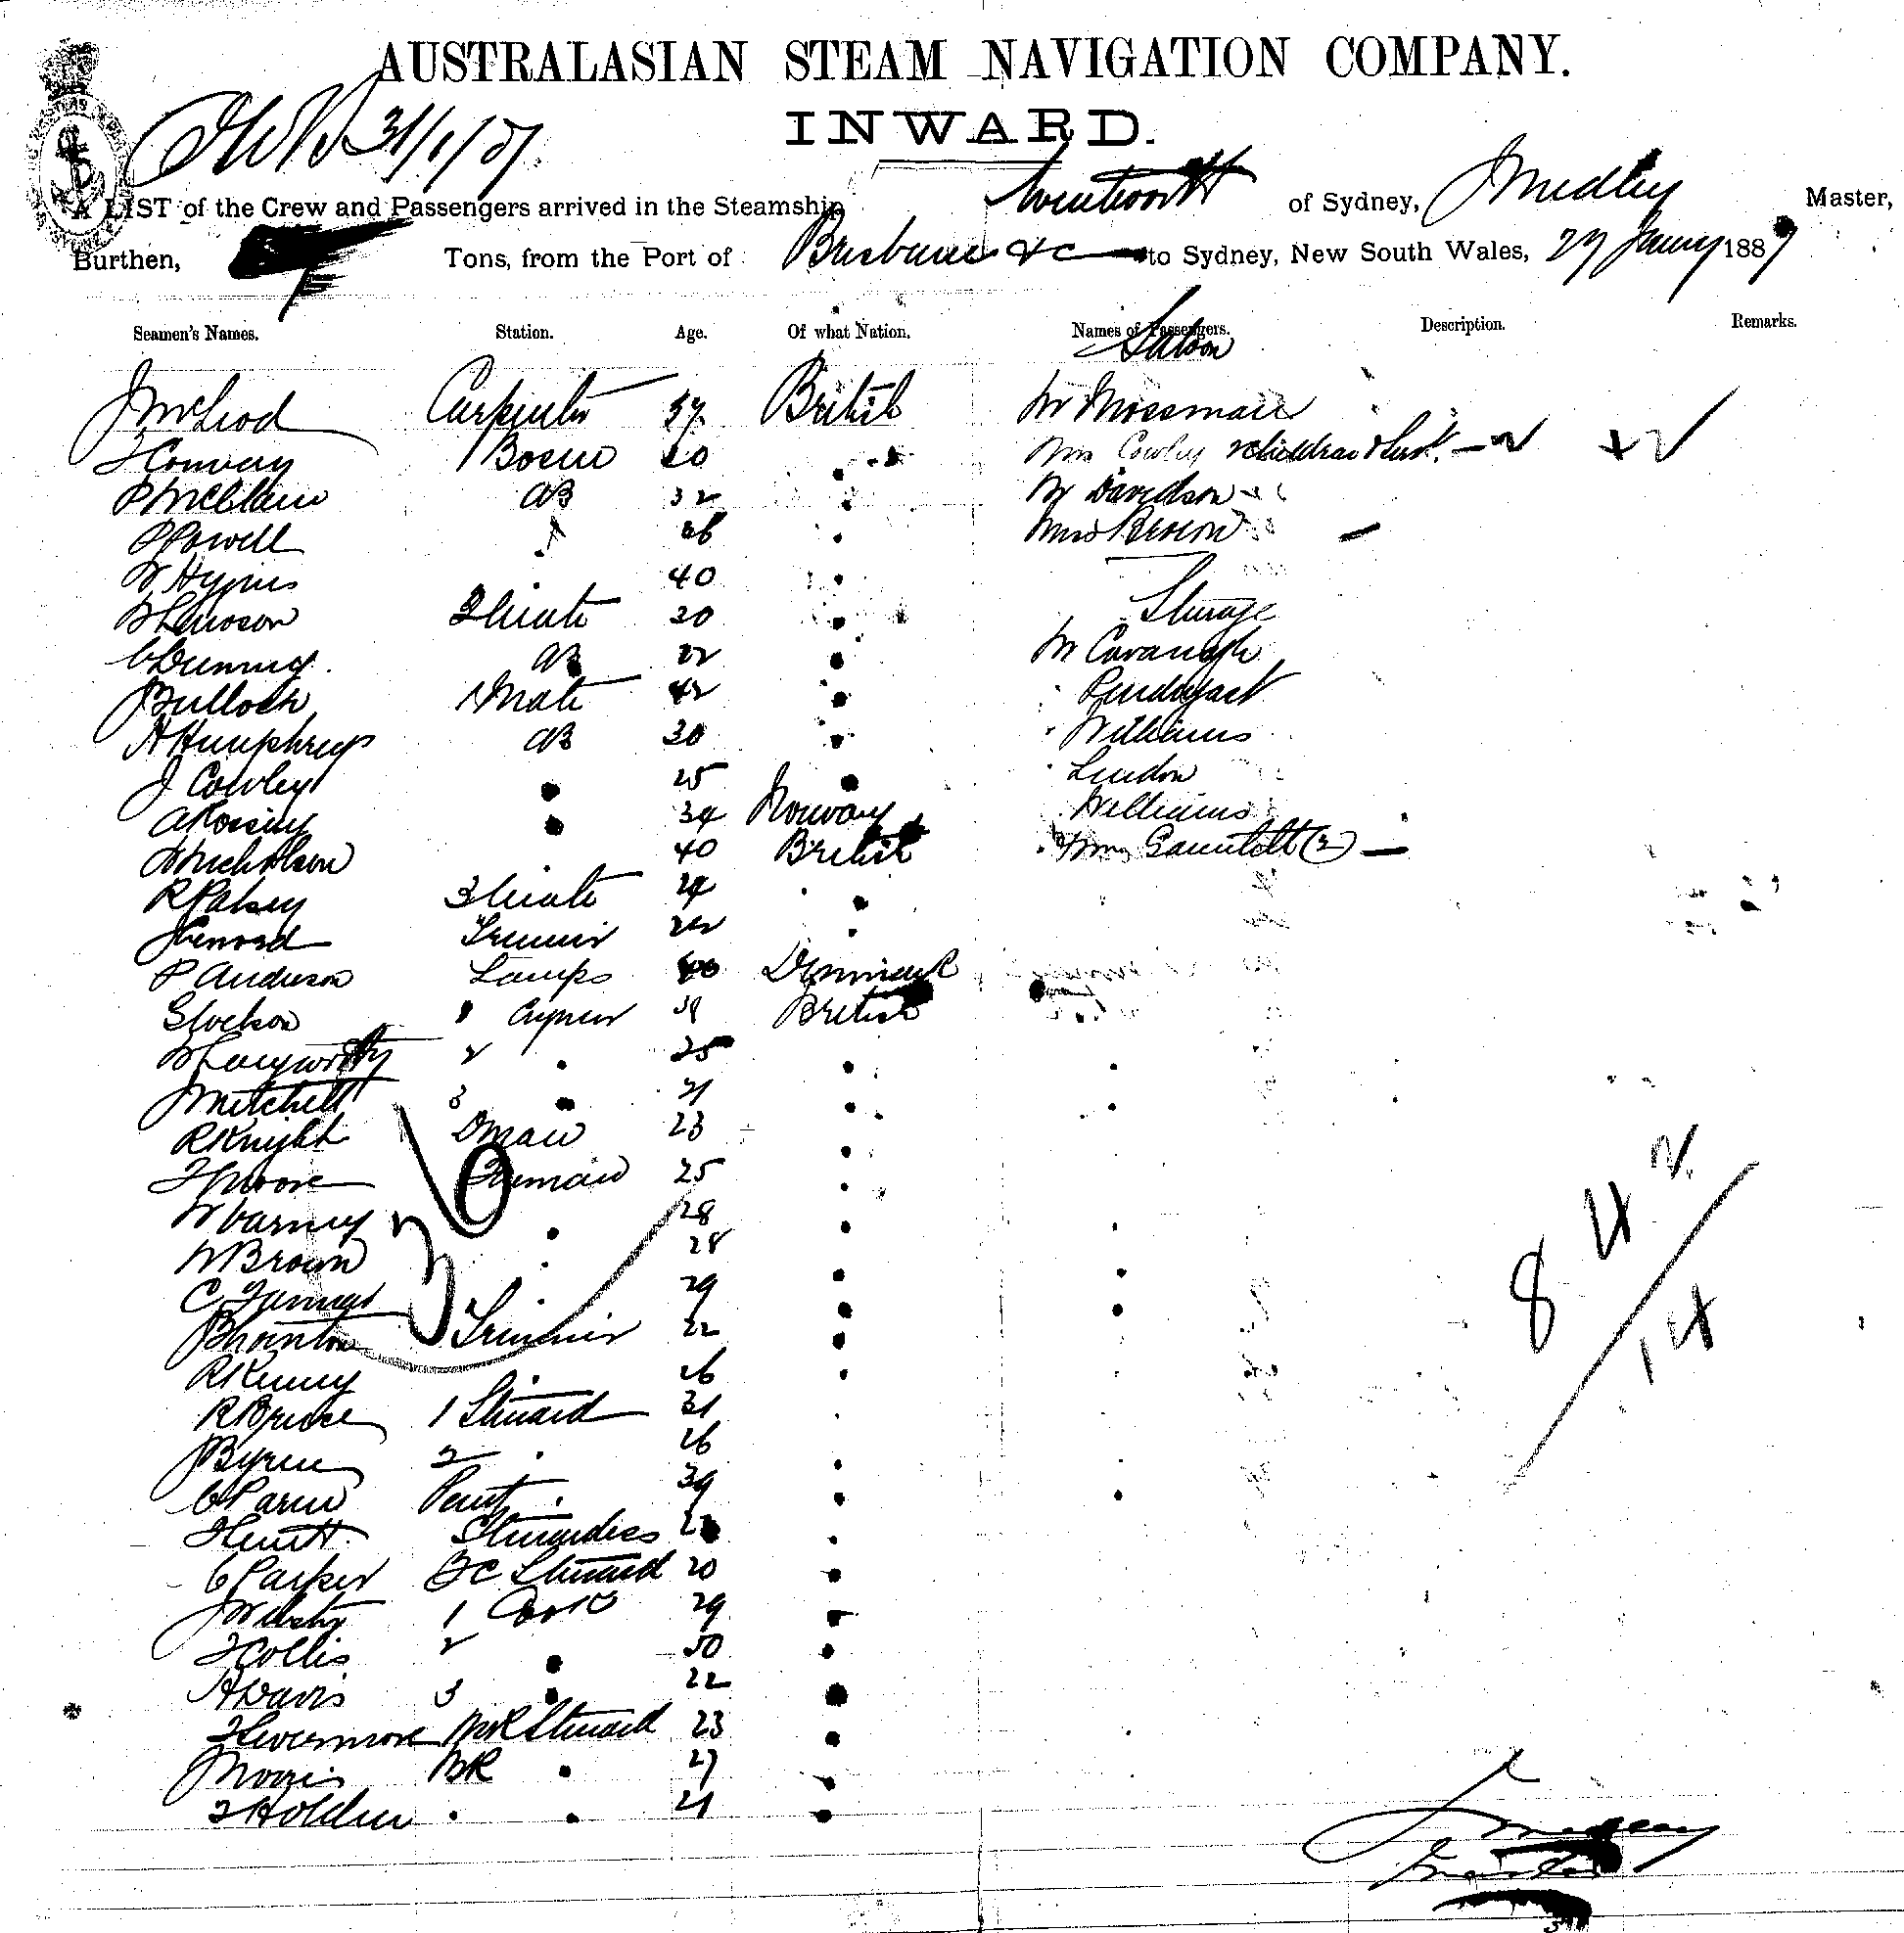 AUSTRALASIAN STEAM NAVIGATION COMPANY.
INWARD.
31/1/87.
A LIST of the Crew and Passengers arrived in the Steamship Wentworth of Sydney, J Medley Master,
Burthen, Tons, from the Port of Brisbane &c to Sydney, New South Wales, 27 Jany 1887
Seamen's Names. Station. Age. Of what Nation. Names of Passengers. Description. Remarks.
Saloon
J McLeod Carpenter 37 British Mr Mossman
T Conway Bosun Mrs Cowley 2 children
AB 32 Mr Davidson
P Powell 26 Miss Brown
W Hynes 40
Steerage
2 Mate 30
C Dunning AB 22 Mr Cavanagh
J Bulloch 1 Mate 42 Pendergast
H Humphreys AB 30 Williams
J Cowley 25
34 Norway Williams
W Nicholson 40 British Mrs Gauntlett (2)
R Palsey 3 Mate 24
Trimmer 22
P Anderson Lamps 40 Denmark
British
W Langworthy 2 25
J Mitchell 3 21
R Knight Dman 23
T Moore Fireman 25
W Varney 28
W Brown 28
C 29
J Thornton Trimmer 22
R Kenny 26
R Bruce 1 Steward 31
J Byrne 2 26
C Pantry 39
T Hewitt Stewardess
C Parker BC Steward 20
J Webster 1 Cook 29
T Collis 2 50
H Davis 3 22
T Livermore MR Steward 23
J Morris BR 27
T Holden 21
36
8 4 2
14
J Medley
Master